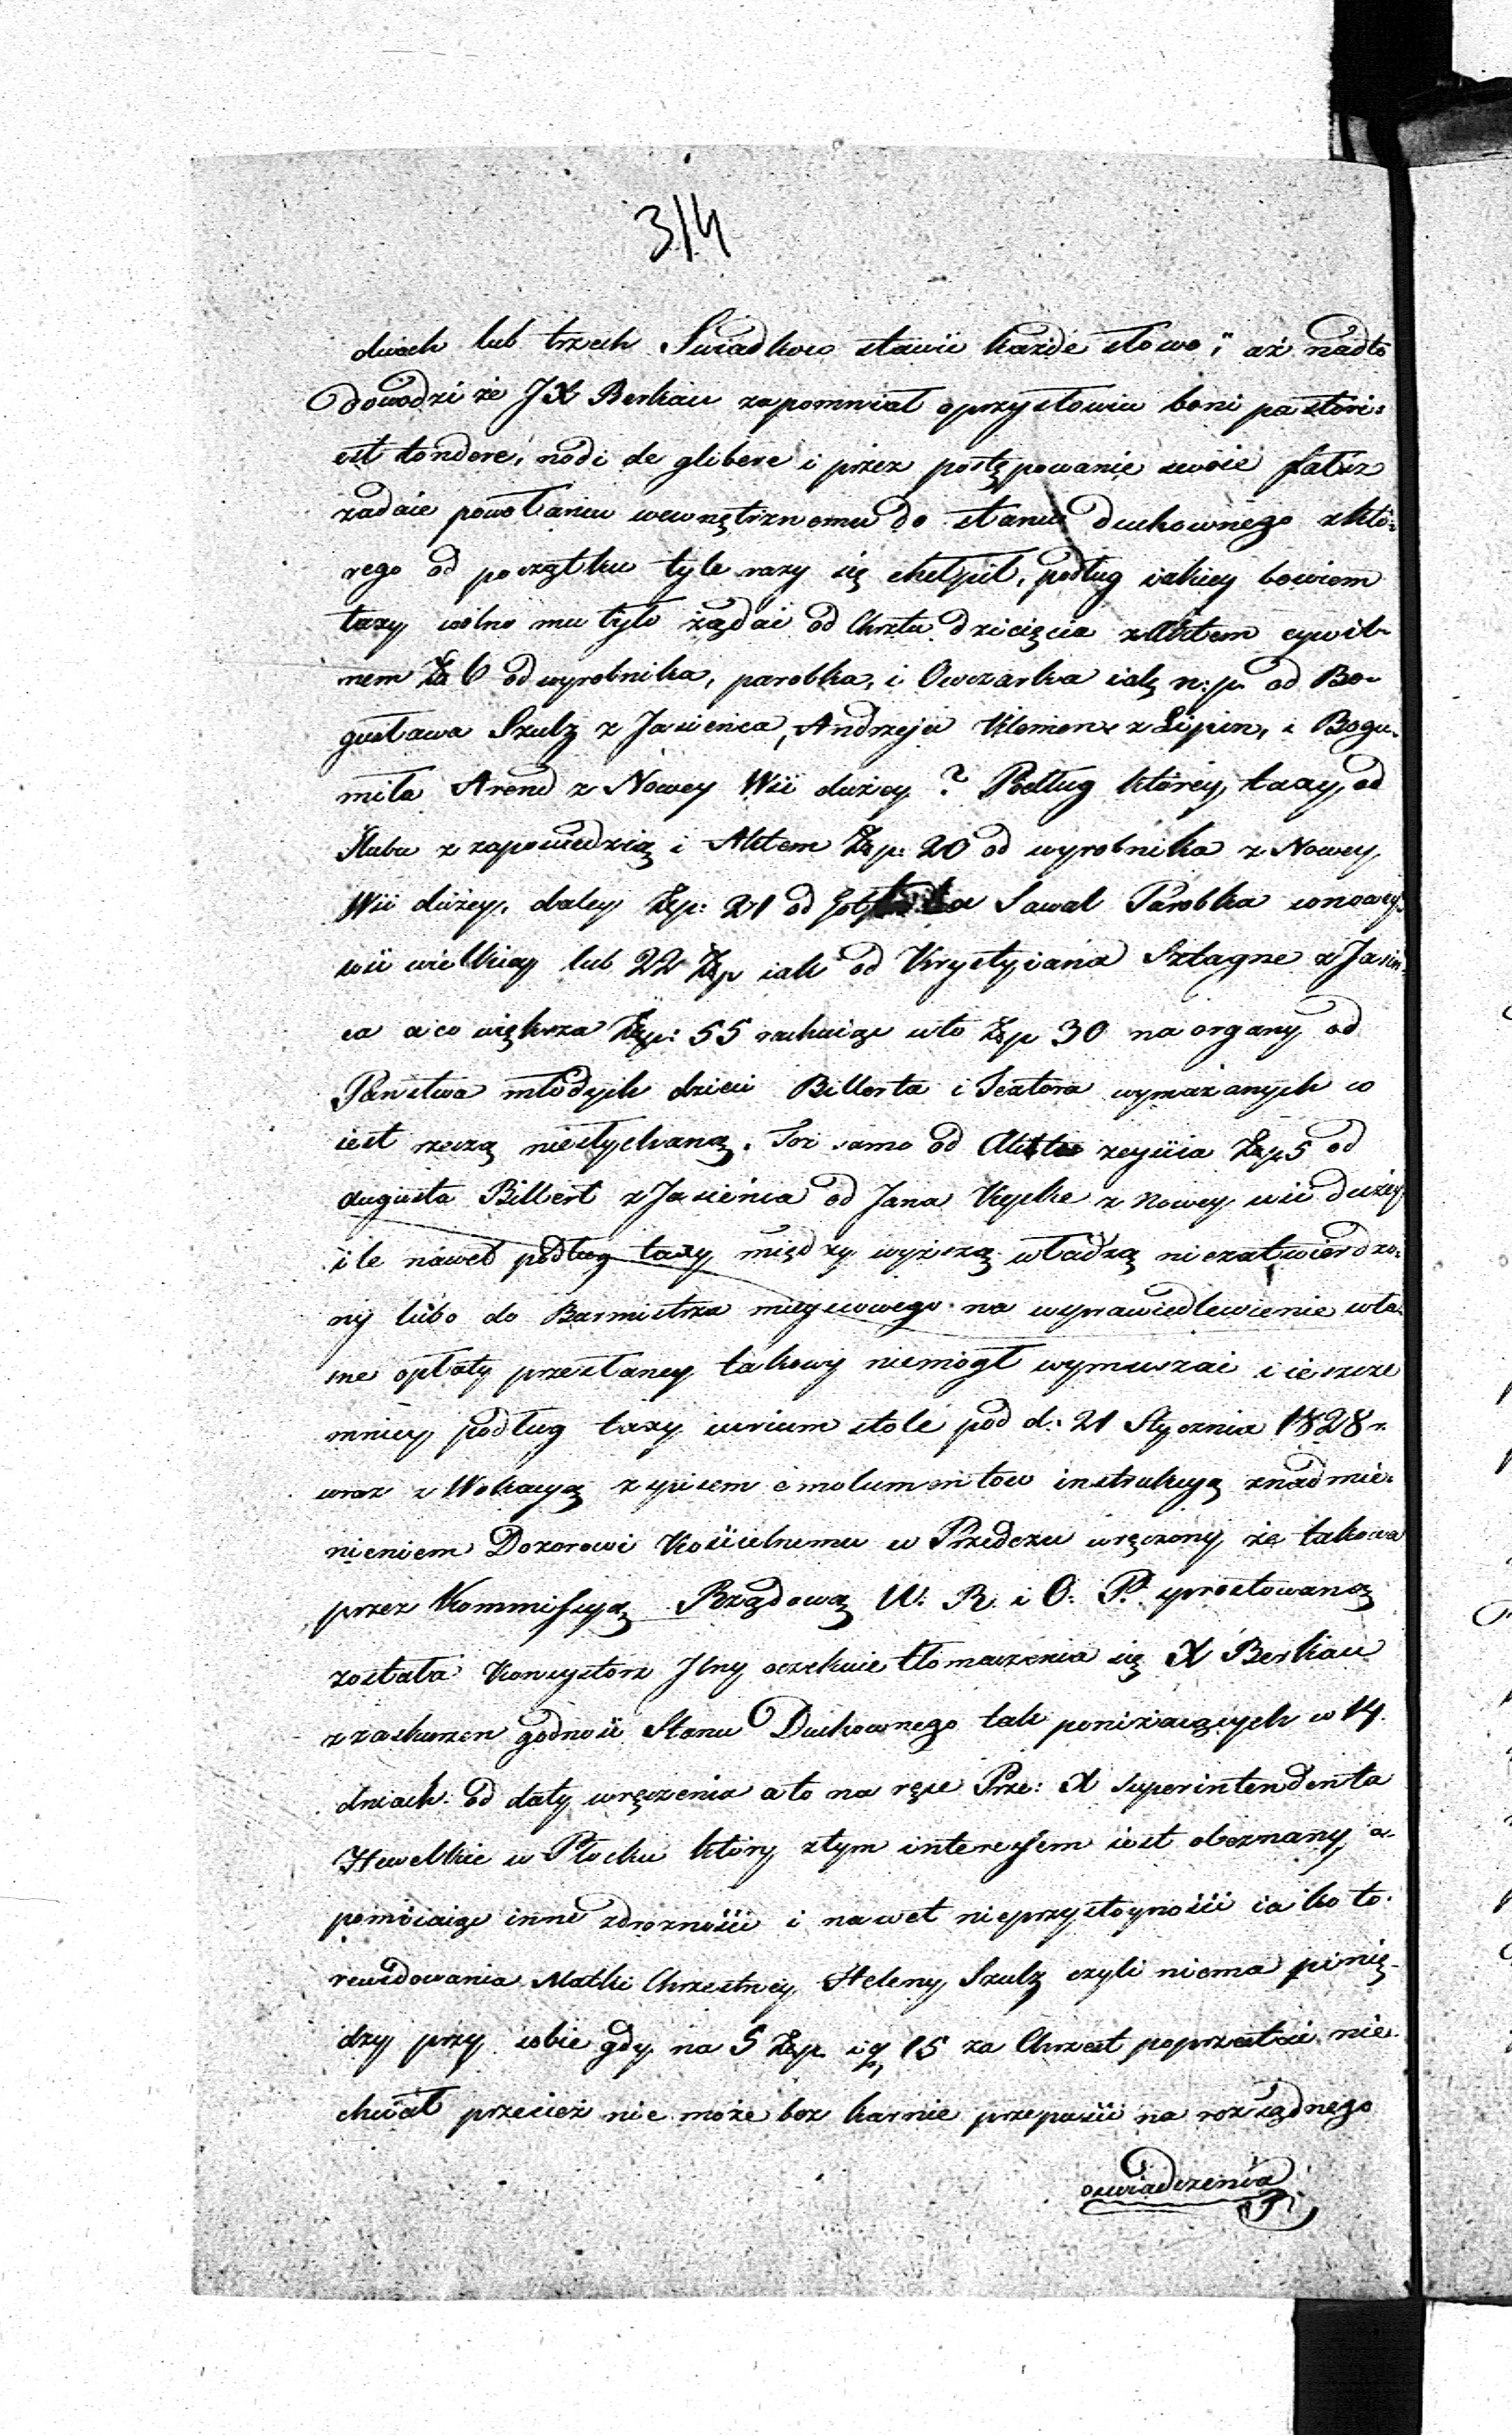 314
dwóch lub trzech Swiadkow stawić każde słowo; aż nadto
dowodzi że JX Berkau zapomniał o przysłowiu boni pastori:
est tondere, nodi de glibere i przez postępowanie swoie fałsz
zadaie powołaniu wewnętrznemu do stanu duchownego z któ=
rego od początku tyle razy się chełpił, podług iakiey bowiem
taxy wolno mu było żądać od Chrztu dziecięcia z Aktem cywil=
nem Zł 6 od wyrobnika, parobka, i Owczarka iak n: p. od Bo=
gusława Szulz z Jasieńca, Andrzeja Klemenx z Lipin, i Bogu=
miła Arend z Nowey Wsi dużey? Podług którey taxy od
Ślubu z zapowiedzią i Aktem Złp: 20 od wyrobnika z Nowey
Wsi dużey, daley Złp: 21 od Sawal Parobka w nowey
wsi wielkiey lub 22 Złp iak od Krystyiana Sztagne z Jasień=
ca a co większa Złp: 55 rachuiąc w to Złp 30 na organy od
Państwa młodych dzieci Billerta i Teatora wymażanych co
iest rzeczą niesłychaną. Toż samo od Aktu zeyścia Złp 5 od
Augusta Billert z Jasieńca od Jana Kepke z Nowey wsi dużey
ile nawet podług taxy między wyższą władzą niezatwierdzo=
ny lubo do Burmistrza mieyscowego na usprawiedliwienie wła=
sne opłaty przesłaney takowy niemógł wymuszać i ieszcze
mniey podług taxy iurium stole pod d: 21 Stycznia 1828 r.
wraz z Wokacyą z spisem emolumentow instrukcyą z nadmie=
nieniem Dozorowi Kościelnemu w Przedczu wręczony że takowa
przez Kommissyą Rządową W: R. i O: P. sprostowaną
została Konsystorz Jlny oczekuie tłomaczenia się X Berkau
z zaskarzen godność Stanu Duchownego tak poniżaiących w 14
dniach od daty wręczenia a to na ręce Prze: X Superintendenta
Hewelkie w Płocku który z tym interessem iest obeznany a
pomiiaiąc inne zdrożności i nawet nieprzystoyności iako to:
rewidowania Matki Chrzestney Heleny Szulz czyli niema pinię=
dzy przy sobie gdy na 5 Złp i g 15 za Chrzest poprzestać nie
chciał przecież nie może bez karnie przepuścić na rozsądnego
oswiadczenia